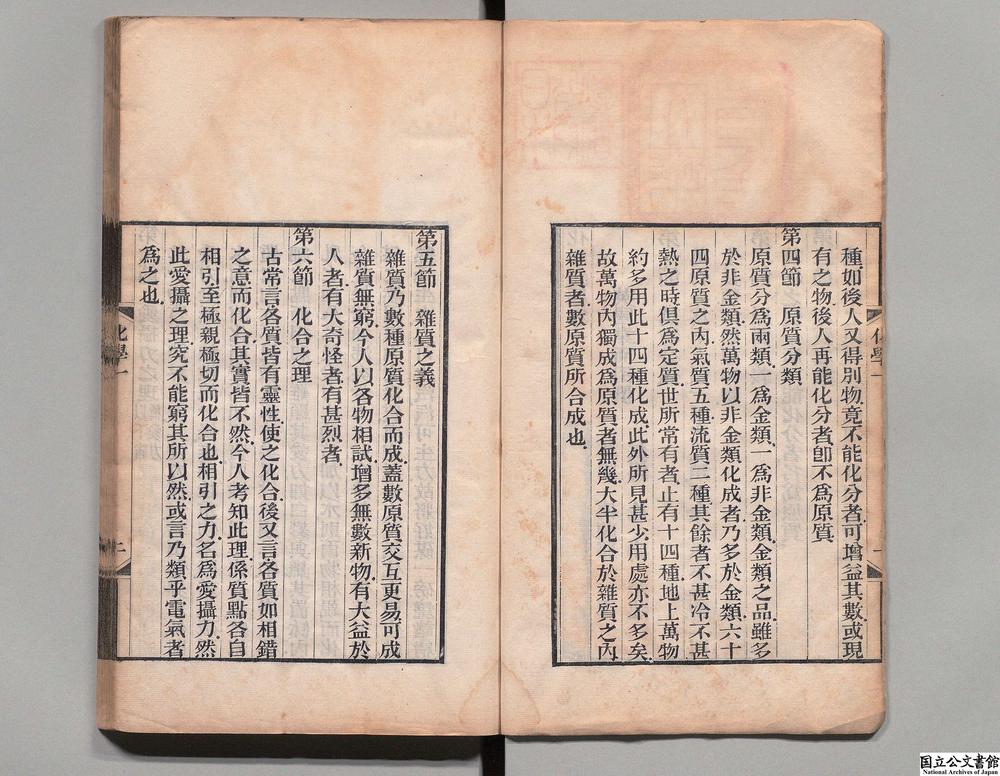 種如後人又得別物竟不能化分者可增益其數或現
有之物後人再能化分者卽不爲原質
第四節　原質分類
原質分爲兩類一爲金類一爲非金類金類之品雖多
於非金類然萬物以非金類化成者乃多於金類六十
四原質之內氣質五種流質二種其餘者不甚冷不甚
熱之時俱爲定質世所常有者止有十四種地上萬物
約多用此十四種化成此外所見甚少用處亦不多矣
故萬物內獨成爲原質者無幾大半化合於雜質之內
雜質者數原質所合成也
第五節　雜質之義
雜質乃數種原質化合而成蓋數原質交互更易可成
雜質無窮今人以各物相試增多無數新物有大益於
人者有大奇怪者有甚烈者
第六節　化合之理
古常言各質皆有靈性使之化合後又言各質如相錯
之意而化合其實皆不然今人考知此理係質點各自
相引至極親極切而化合也相引之力名爲愛攝力然
此愛攝之理究不能窮其所以然或言乃類乎電氣者
爲之也
化學一
二
国立公文書館
National Archives of Japan